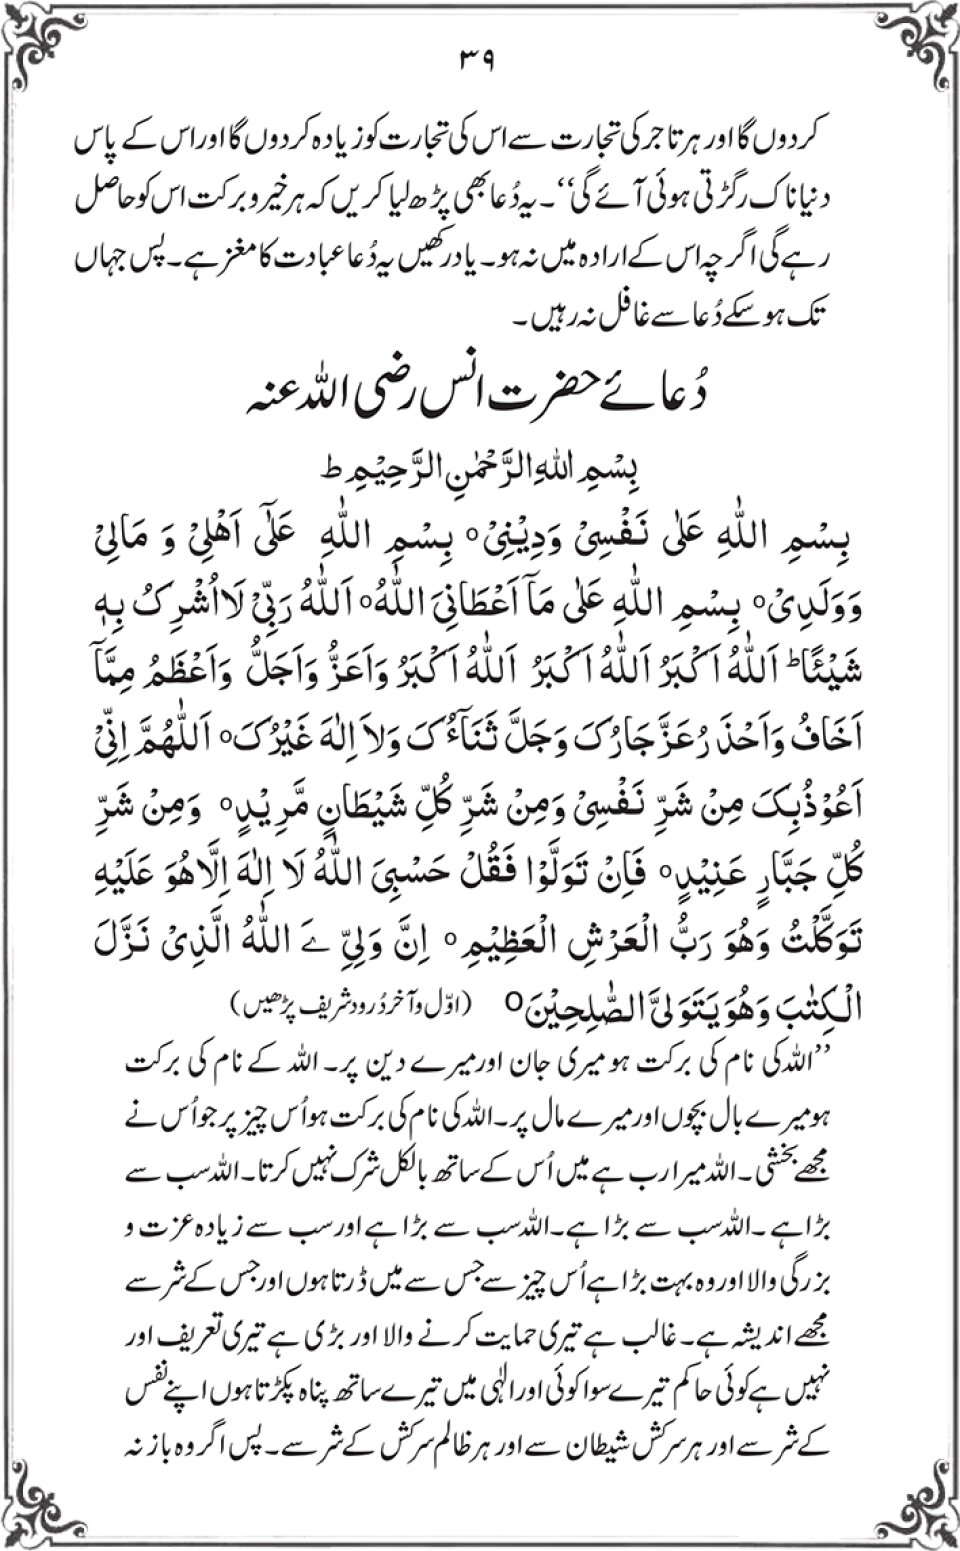 ۳۹
کردوں گا اور ہر تاجر کی تجارت سے اس کی تجارت کو زیادہ کردوں گا اور اس کے پاس
دنیا ناک رگڑتی ہوئی آئے گی‘‘۔ یہ دُعا بھی پڑھ لیا کریں کہ ہر خیر و برکت اس کو حاصل
رہے گی اگر چہ اس کے ارادہ میں نہ ہو۔ یاد رکھیں یہ دُعا عبادت کا مغز ہے۔ پس جہاں
تک ہو سکے دُعا سے غافل نہ رہیں۔
دُعائے حضرت انس رضی اللہ عنہ
بِسْمِ اللهِ الرَّحْمٰنِ الرَّحِیْمِ ط
بِسْمِ اللّٰهِ عَلٰی نَفْسِیْ وَدِیْنِیْ o بِسْمِ اللّٰهِ عَلٰٓی اَهْلِیْ وَ مَالِیْ
وَوَلَدِیْ o بِسْمِ اللّٰهِ عَلٰی مَآ اَعْطَانِیَ اللّٰهُ o اَللّٰهُ رَبِّیْ لَا اُشْرِکُ بِهٖ
شَیْئًا ط اَللّٰهُ اَکْبَرُ اَللّٰهُ اَکْبَرُ اَللّٰهُ اَکْبَرُ وَاَعَزُّ وَاَجَلُّ وَاَعْظَمُ مِمَّآ
اَخَافُ وَاَحْذَ رُعَزَّ جَارُکَ وَجَلَّ ثَنَآءُکَ وَلاَ اِلٰهَ غَیْرُکَ o اَللّٰهُمَّ اِنِّیْ
اَعُوْذُبِکَ مِنْ شَرِّ نَفْسِیْ وَمِنْ شَرِّ کُلِّ شَیْطَانٍ مَّرِیْدٍ o وَمِنْ شَرِّ
کُلِّ جَبَّارٍ عَنِیْدٍ o فَاِنْ تَوَلَّوْا فَقُلْ حَسْبِیَ اللّٰهُ لَا اِلٰهَ اِلَّا هُوَ عَلَیْهِ
تَوَکَّلْتُ وَهُوَ رَبُّ الْعَرْشِ الْعَظِیْمِ o اِنَّ وَلِیِّ ےَ اللّٰهُ الَّذِیْ نَزَّلَ
الْکِتٰبَ وَهُوَ یَتَوَلیَّ الصّٰلِحِیْنَ o (اوّل و آخر دُرود شریف پڑھیں)
’’اللہ کی نام کی برکت ہو میری جان اور میرے دین پر۔ اللہ کے نام کی برکت
ہو میرے بال بچوں اور میرے مال پر۔ اللہ کی نام کی برکت ہو اُس چیز پر جو اُس نے
مجھے بخشی۔ اللہ میرا رب ہے میں اُس کے ساتھ بالکل شرک نہیں کرتا۔ اللہ سب سے
بڑا ہے۔ اللہ سب سے بڑا ہے۔ اللہ سب سے بڑا ہے اور سب سے زیادہ عزت و
بزرگی والا اور وہ بہت بڑا ہے اُس چیز سے جس سے میں ڈرتا ہوں اور جس کے شر سے
مجھے اندیشہ ہے۔ غالب ہے تیری حمایت کرنے والا اور بڑی ہے تیری تعریف اور
نہیں ہے کوئی حاکم تیرے سوا کوئی اور الٰہی میں تیرے ساتھ پناہ پکڑتا ہوں اپنے نفس
کے شر سے اور ہر سرکش شیطان سے اور ہر ظالم سرکش کے شر سے۔ پس اگر وہ باز نہ